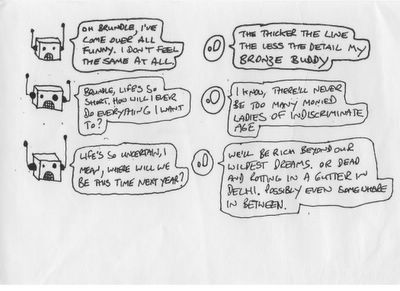 OH BRUNDLE, I'VE
COME OVER ALL
FUNNY. I DON'T FEEL
THE SAME AT ALL.
THE THICKER THE LINE
THE LESS THE DETAIL MY
BRONZE BUDDY
BRUNDLE, LIFE'S SO
SHORT. HOW WILL I EVER
DO EVERYTHING I WANT
TO?
I KNOW, THERE'LL NEVER
BE TOO MANY MONIED
LADIES OF INDISCRIMINATE
AGE
LIFE'S SO UNCERTAIN, I
MEAN, WHERE WILL WE
BE THIS TIME NEXT YEAR?
WE'LL BE RICH BEYOND OUR
WILDEST DREAMS. OR DEAD
AND ROTTING IN A GUTTER IN
DELHI. POSSIBLY EVEN SOMEWHERE
IN BETWEEN.